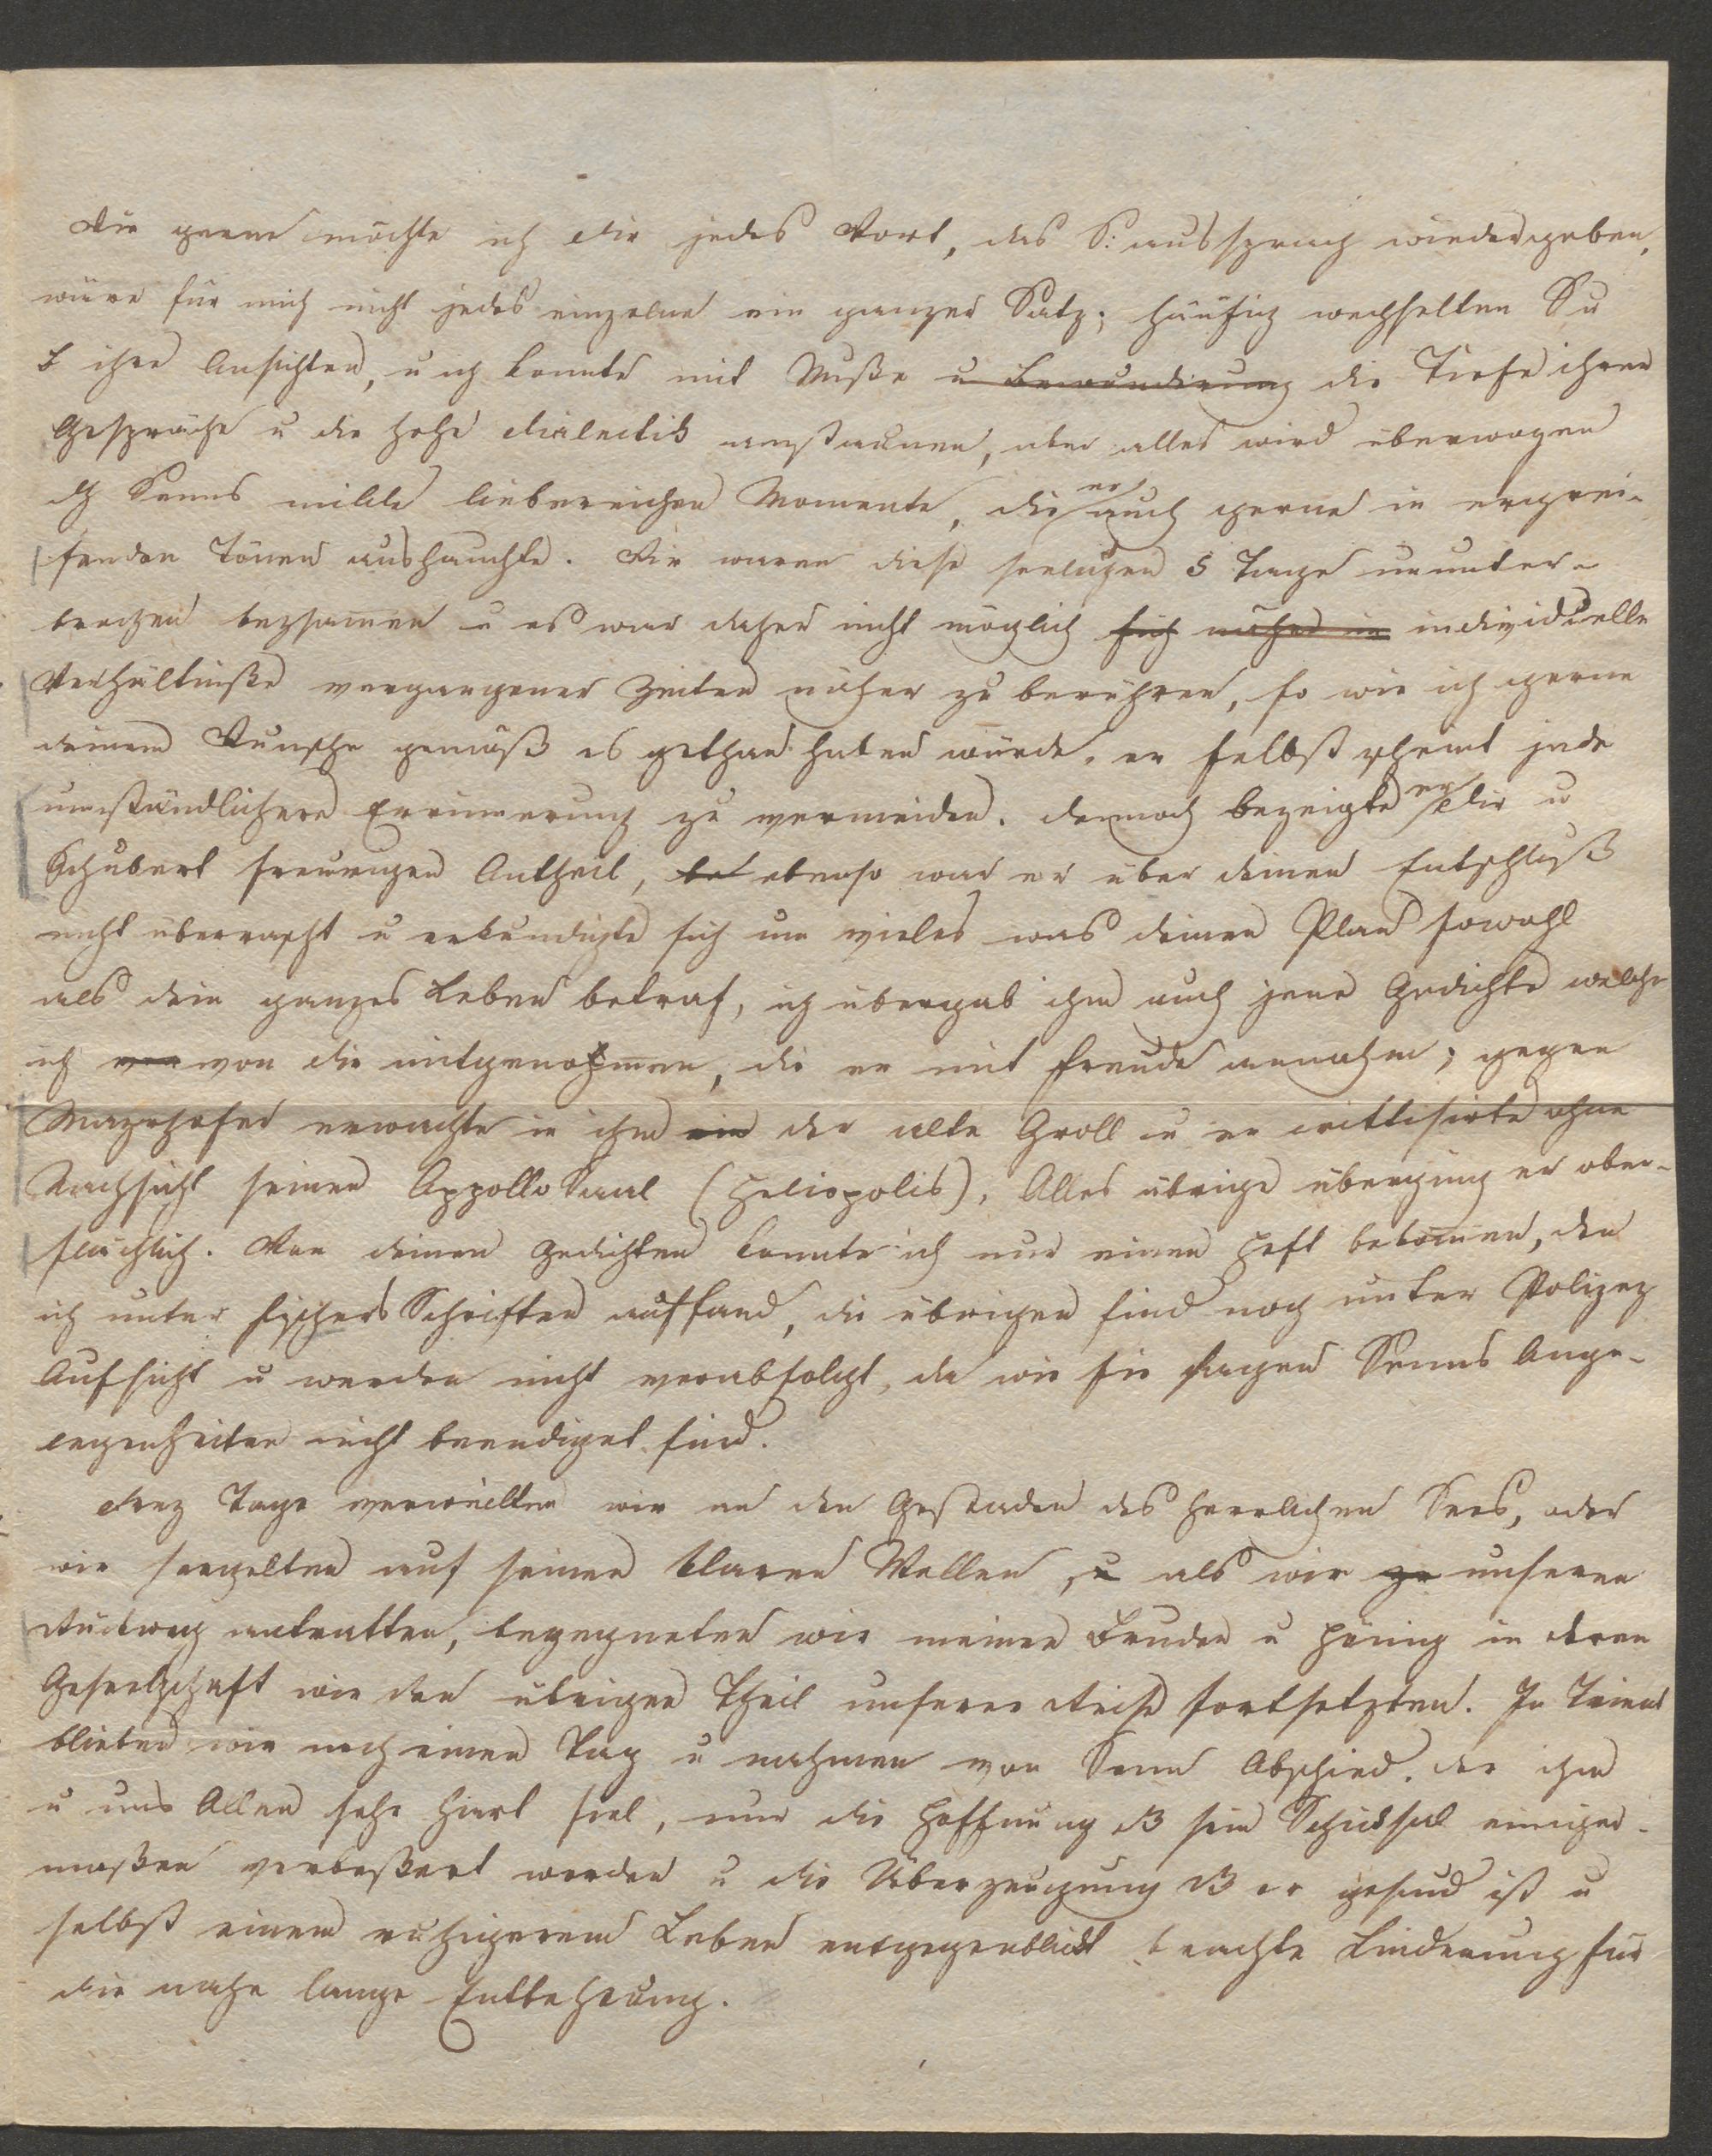 Wie gerne möchte ich dir jedes Wort, das S: aussprach wiedergeben,
wäre für mich nicht jedes einzelne ein ganzer Satz; häufig wechselten S u
B ihre Ansichten, u ich konnte mit Muße u Bewunderung die Tiefe ihrer
Gespräche u die hohe Dialectik anstaunen, aber alles wird überwogen
dch Senns milde liebereichen Momente, die er auch gerne in ergrei-
fenden Tönen aushauchte. Wir waren diese seeligen 5 Tage ununter-
brochen beysamen u es war daher nicht möglich sich näher in individuelle
Verhältniße vergangener Zeiten näher zu berühren, so wie ich gerne
deinem Wunsche gemäß es gethan haben würde, er selbst scheint jede
umständlichere Errinnerung zu vermeiden. Dennoch bezeigte er dir u
Schubert freurigen Antheil, bei ebenso war er über deinen Entschluß
nicht überrascht u erkundigte sich um vieles was deinen Plan sowohl
als dein ganzes Leben betraf, ich übergab ihm auch jene Gedichte welche
ich von von dir mitgenohmen, die er mit Freude annahm; gegen
Mayrhofer erwachte in ihm ein der alte Groll u er crittisirte ohne
Nachsicht seinen Appollo Saal (Heliopolis), Alles übrige übergieng er ober-
flächlich. Von deinen Gedichten konnte ich nur einen Heft bekomen, den
ich unter Fischers Schriften auffand, die übrigen sind noch unter Polizey
Aufsicht u werden nicht verabfolgt, da wie sie sagen Senns Ange-
legenheiten nicht beendiget sind.
Drey Tage verweilten wir an den Gestaden des herrlichen Sees, oder
wir seegelten auf seinen klaren Wellen, u als wir zu unseren
Rückweg antratten, begegneten wir meinen Bruder u Hönig in deren
Gesellschaft wir den übrigen Theil unserer Reise fortsetzten. In Trient
blieben wir noch einen Tag u nahmen von Senn Abschied. der ihm
u uns Allen sehr hart fiel, nur die Hoffnung dß sein Schicksal einiger-
maßen verbeßert werden u die Überzeugung dß er gesund ist u
selbst einem ruhigerem Leben entgegenblickt brachte Linderung für
die nahe lange Entbehrung.